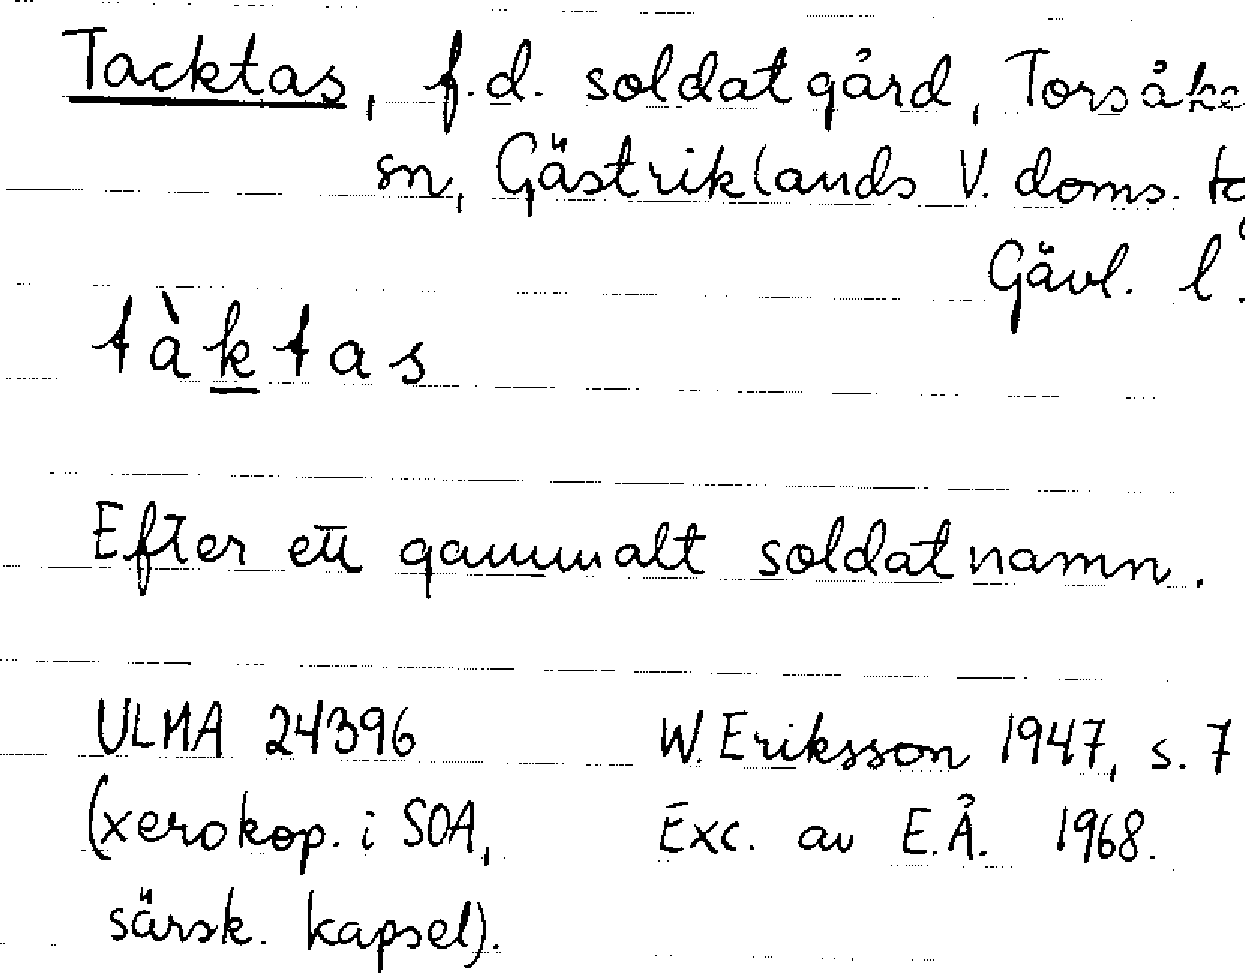 Tacktas, f.d. soldatgård, Torsåke
sn, Gästriklands V. doms.
Gävl. l.
tàktas
Efter ett gammalt soldatnamn.
ULMA 24396 W. Eriksson 1947, s. 7
(xerokop. i SOA, Exc. av E.Å. 1968.
särsk. kapsel).